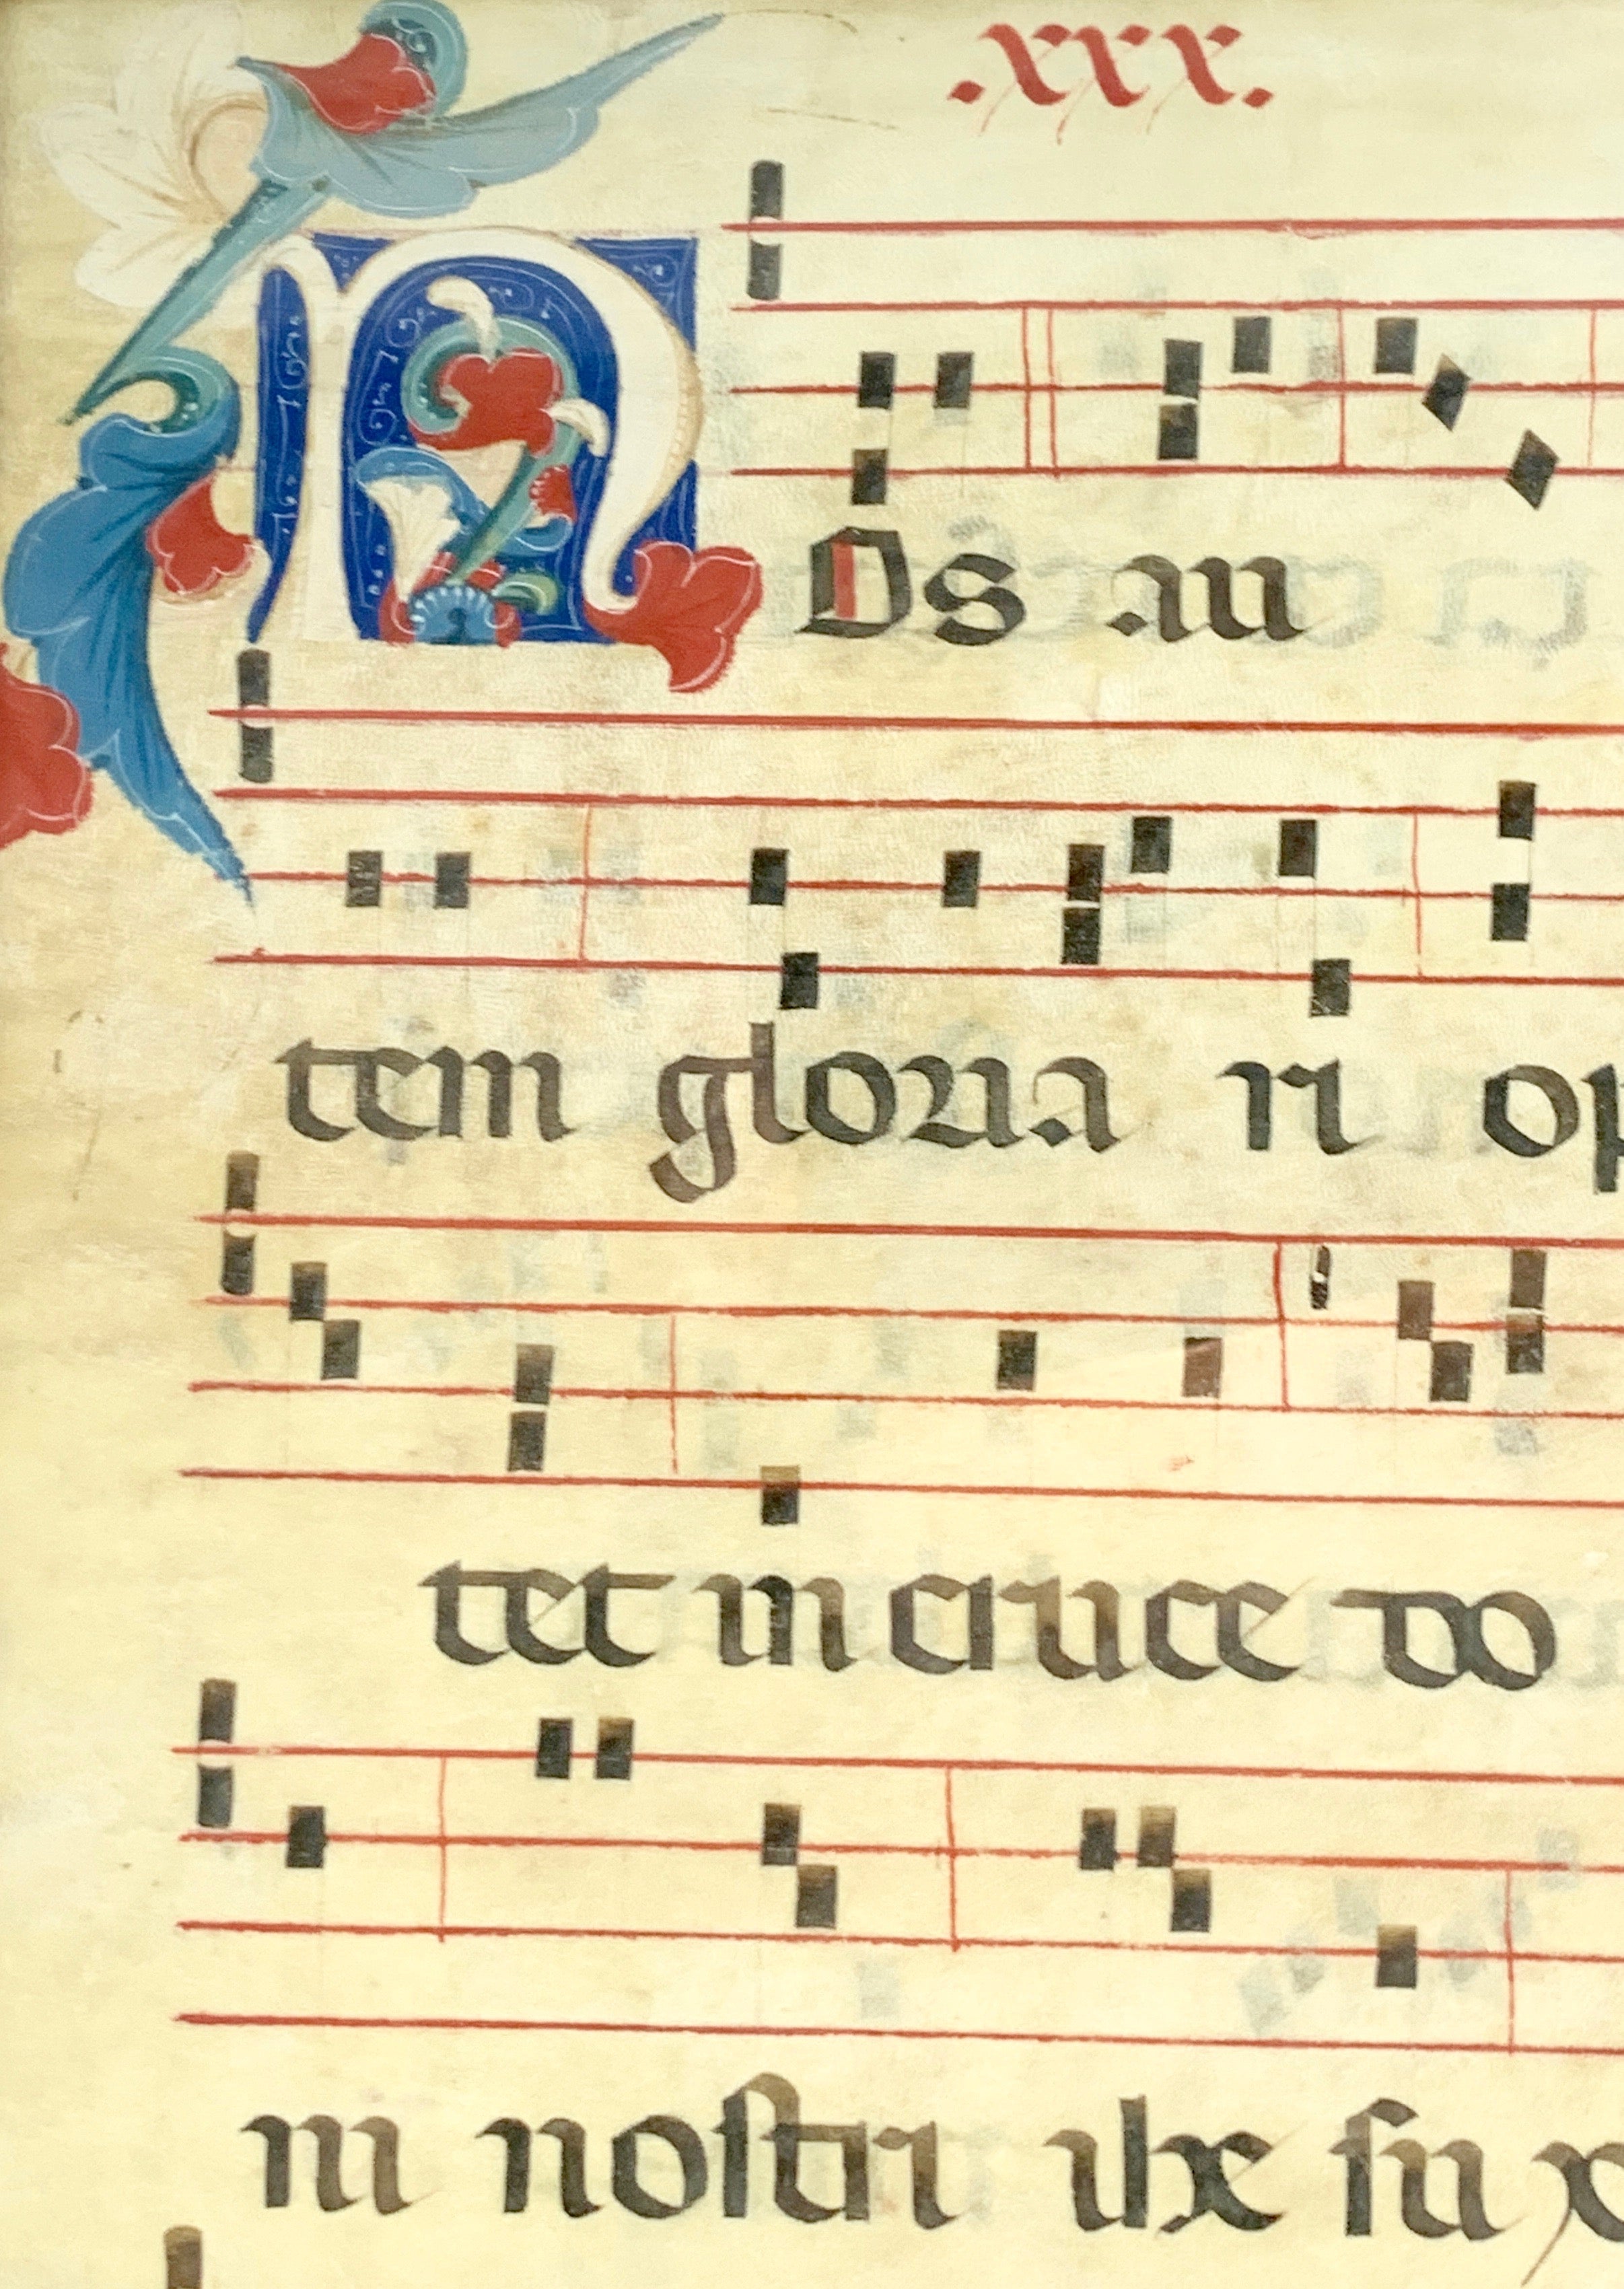 .xxx.
nOs au
tem gloria ri op
tet in cruce do
ni nostri ihe su x